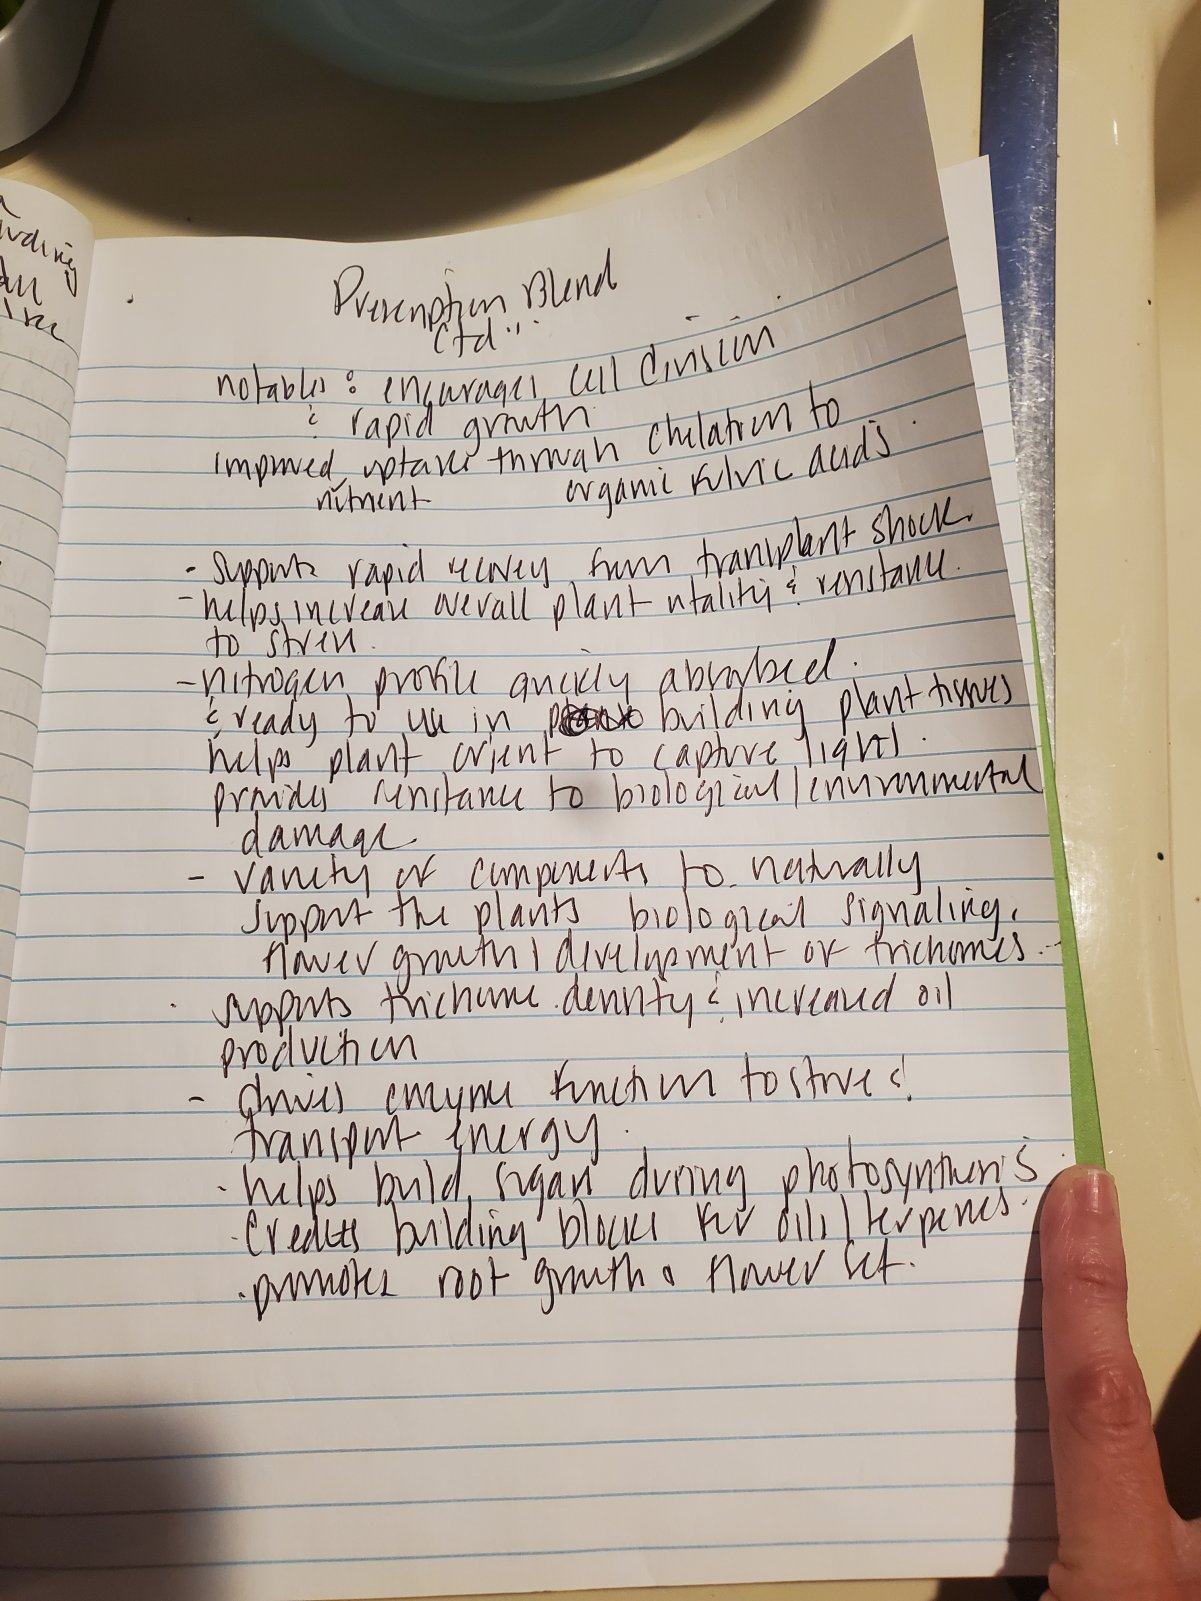 Prescription Blend
Ctd"
notables : encourages cell division
& rapid growth
improved uptake through chelation to
nutrient organic fulvic acids.
- Supports rapid recovery from transplant shock.
- helps increase overall plant vitality & resistance
to stress.
- nitrogen profile quickly absorbed.
& ready to use in building plant tissues
helps plant orient to capture light.
provides resistance to biological/environmental
damage
- variety of components to naturally
support the plants biological signaling,
flower growth, development of trichomes.
supports trichome density & increased oil
production
- drives enzyme function to store &
transport energy.
. helps build sugars during photosynthesis
. Creates building blocks for oils/terpenes.
. promotes root growth & flower set.